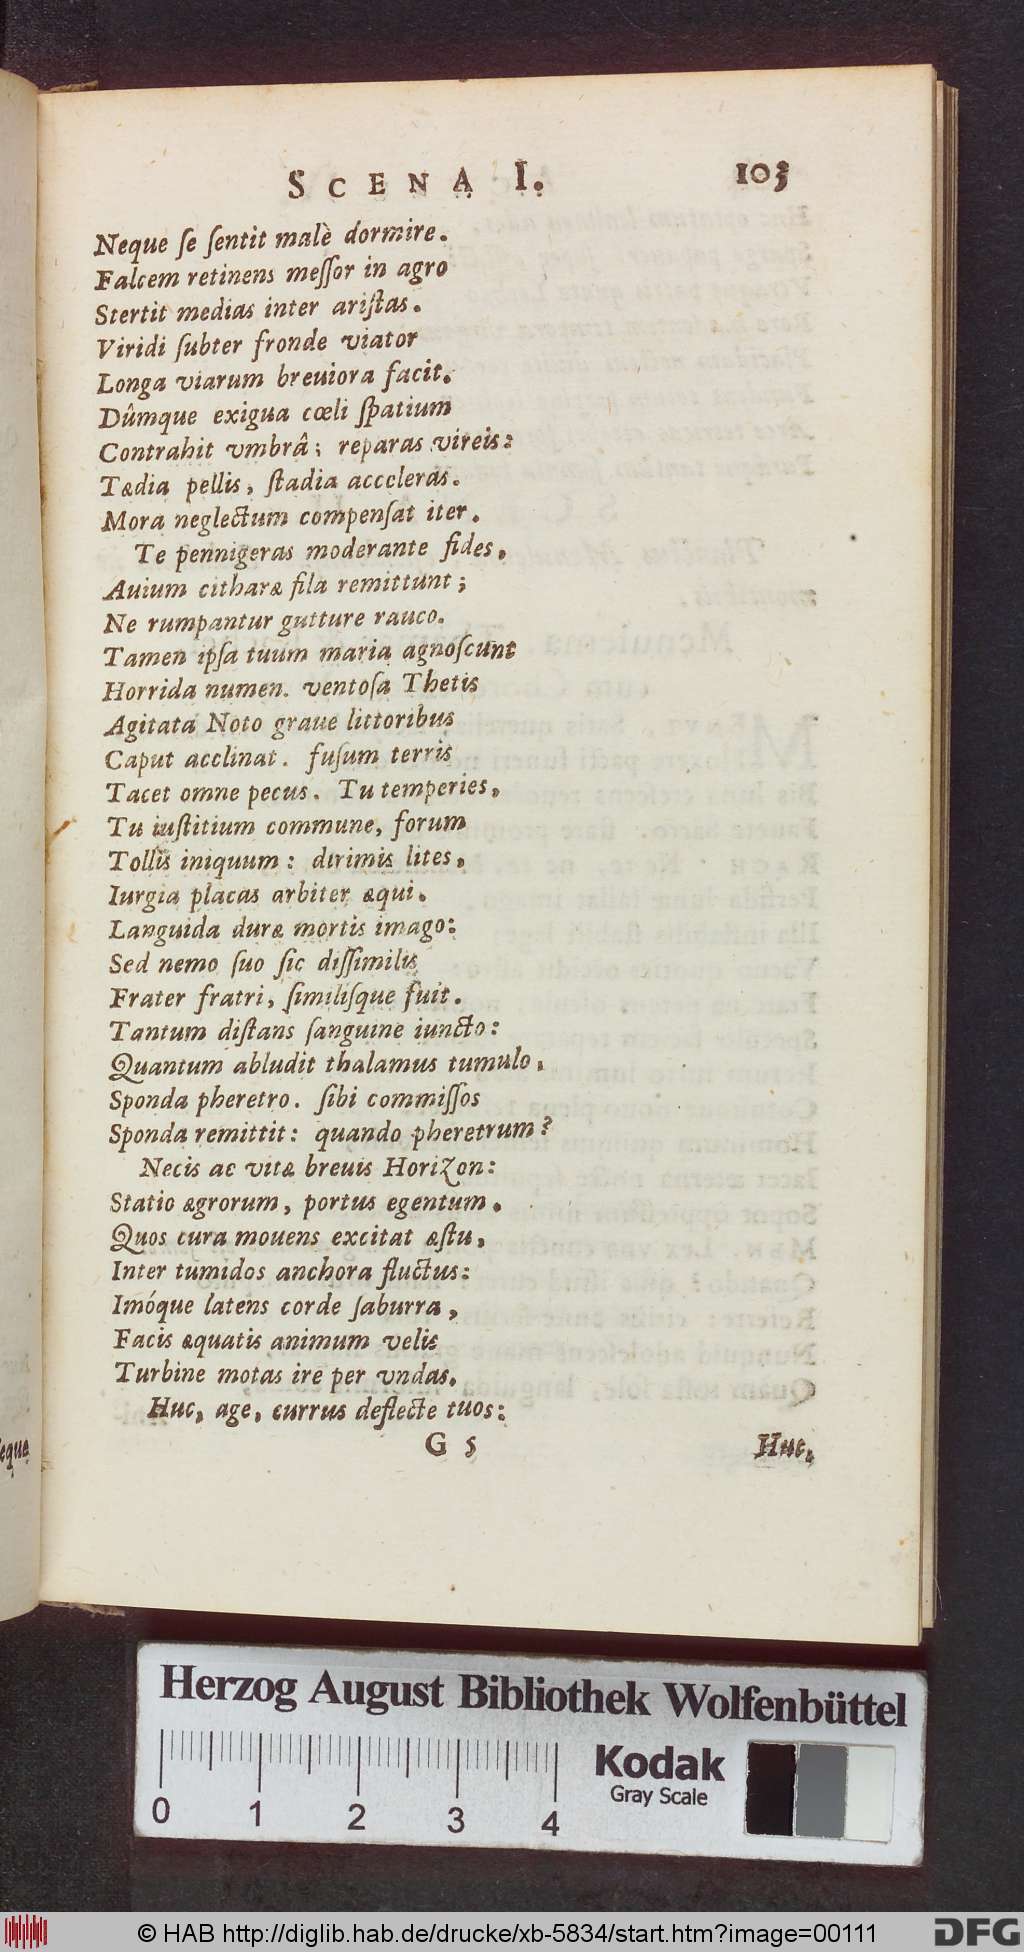 SCENA I. 103
Neque ſe ſentit malè dormire.
Falcem retinens meſſor in agro
Stertit medias inter ariſtas.
Viridi ſubter fronde viator
Longa viarum breuiora facit.
Dûmque exigua cœli ſpatium
Contrahit vmbrâ; reparas vireis:
Tædia pellis, ſtadia acceleras.
Mora neglectum compenſat iter.
Te pennigeras moderante fides,
Auium citharæ fila remittunt;
Ne rumpantur gutture rauco.
Tamen ipſa tuum maria agnoſcunt
Horrida numen. ventoſa Thetis
Agitata Noto graue littoribus
Caput acclinat. fuſum terris
Tacet omne pecus. Tu temperies,
Tu iuſtitium commune, forum
Tollis iniquum: dirimis lites,
Iurgia placas arbiter æqui.
Languida duræ mortis imago:
Sed nemo ſuo ſic diſſimilis
Frater fratri, ſimiliſque fuit.
Tantum diſtans ſanguine iuncto:
Quantum abludit thalamus tumulo,
Sponda pheretro. ſibi commiſſos
Sponda remittit: quando pheretrum?
Necis ac vitæ breuis Horizon:
Statio ægrorum, portus egentum.
Quos cura mouens excitat æſtu,
Inter tumidos anchora fluctus:
Imóque latens corde ſaburra,
Facis æquatis animum velis
Turbine motas ire per vndas.
Huc, age, currus deflecte tuos:
G 5 Huc,
eque
Herzog August Bibliothek Wolfenbüttel
Kodak
Gray Scale
0 1 2 3 4
© HAB http://diglib.hab.de/drucke/xb-5834/start.htm?image=00111
DFG